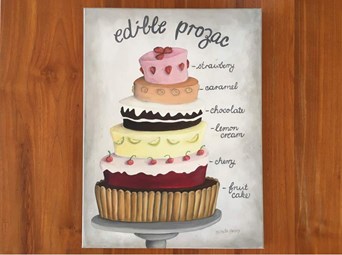 edible prozac
- strawberry
- caramel
- chocolate
- lemon
cream
- cherry
- fruit
cake